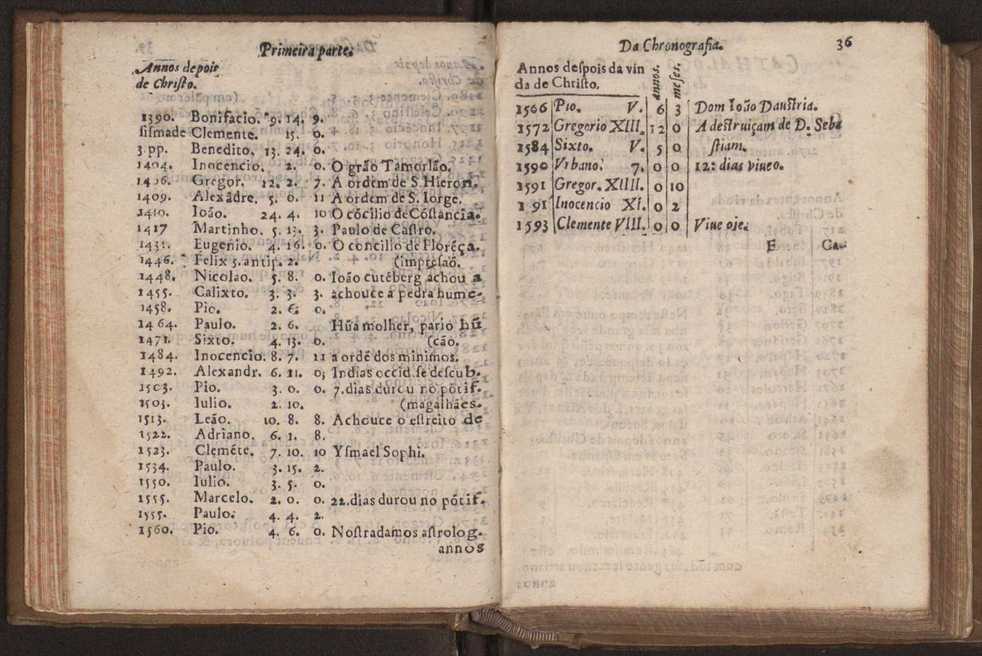 Primeira parte.
Annos depois
de Christo.
1390. Bonifacio. 9. 14. 9.
sismade Clemente. 15. 0.
3 pp. Benedito. 13. 24. 0.
1404. Inocencio. 2. 0. O grão Tamorlão.
1406. Gregor. 12. 2. 7. A ordem de S. Hieron.
1409. Alexãdre. 5. 0. 11 A ordem de S. Iorge.
1410. Ioão. 24. 4. 10 O cõcilio de Cõstancia.
1417 Martinho. 5. 13. 3. Paulo de Castro.
1431. Eugenio. 4. 16. 0. O concilio de Florẽça.
1446. Felix 5. antip. 2. (impresaõ.
1448. Nicolao. 5. 8. 0. Ioão cutẽberg achou a
1455. Calixto. 3. 3. 3. achouce a pedra hume-
1458. Pio. 2. 6. 0.
1464. Paulo. 2. 6. Hũa molher, pario hũ
1471. Sixto. 4. 13. 0. (cão.
1484. Inocencio. 8. 7. 11 a ordẽ dos minimos.
1492. Alexandr. 6. 11. 0; Indias occid. se descub.
1503. Pio. 3. 0. 0. 7. dias durou no põtif.
1503. Iulio. 2. 10. (magalhães.
1513. Leão. 10. 8. 8. Achouce o estreito de
1522. Adriano. 6. 1. 8.
1523. Clemẽte. 7. 10. 10 Ysmael Sophi.
1534. Paulo. 3. 15. 2.
1550. Iulio. 3. 5. 0.
1555. Marcelo. 2. 0. 0. 22. dias durou no põtif.
1555. Paulo. 4. 4. 2.
1560. Pio. 4. 6. 0. Nostradamos astrolog.
annos
Da Chronografia. 36
Annos despois da vin
da de Christo. annos. meses.
1566 Pio. V. 6 3 Dom Ioão Daustria.
1572 Gregorio XIII. 12 0 A destruiçam de D. Seba
1584 Sixto. V. 5 0 stiam.
1590 Vrbano. 7. 0 0 12: dias viueo.
1591 Gregor. XIIII. 0 10
1 91 Inocencio XI. 0 2
1593 Clemente VIII. 0 0 Viue oje.
E Ca-